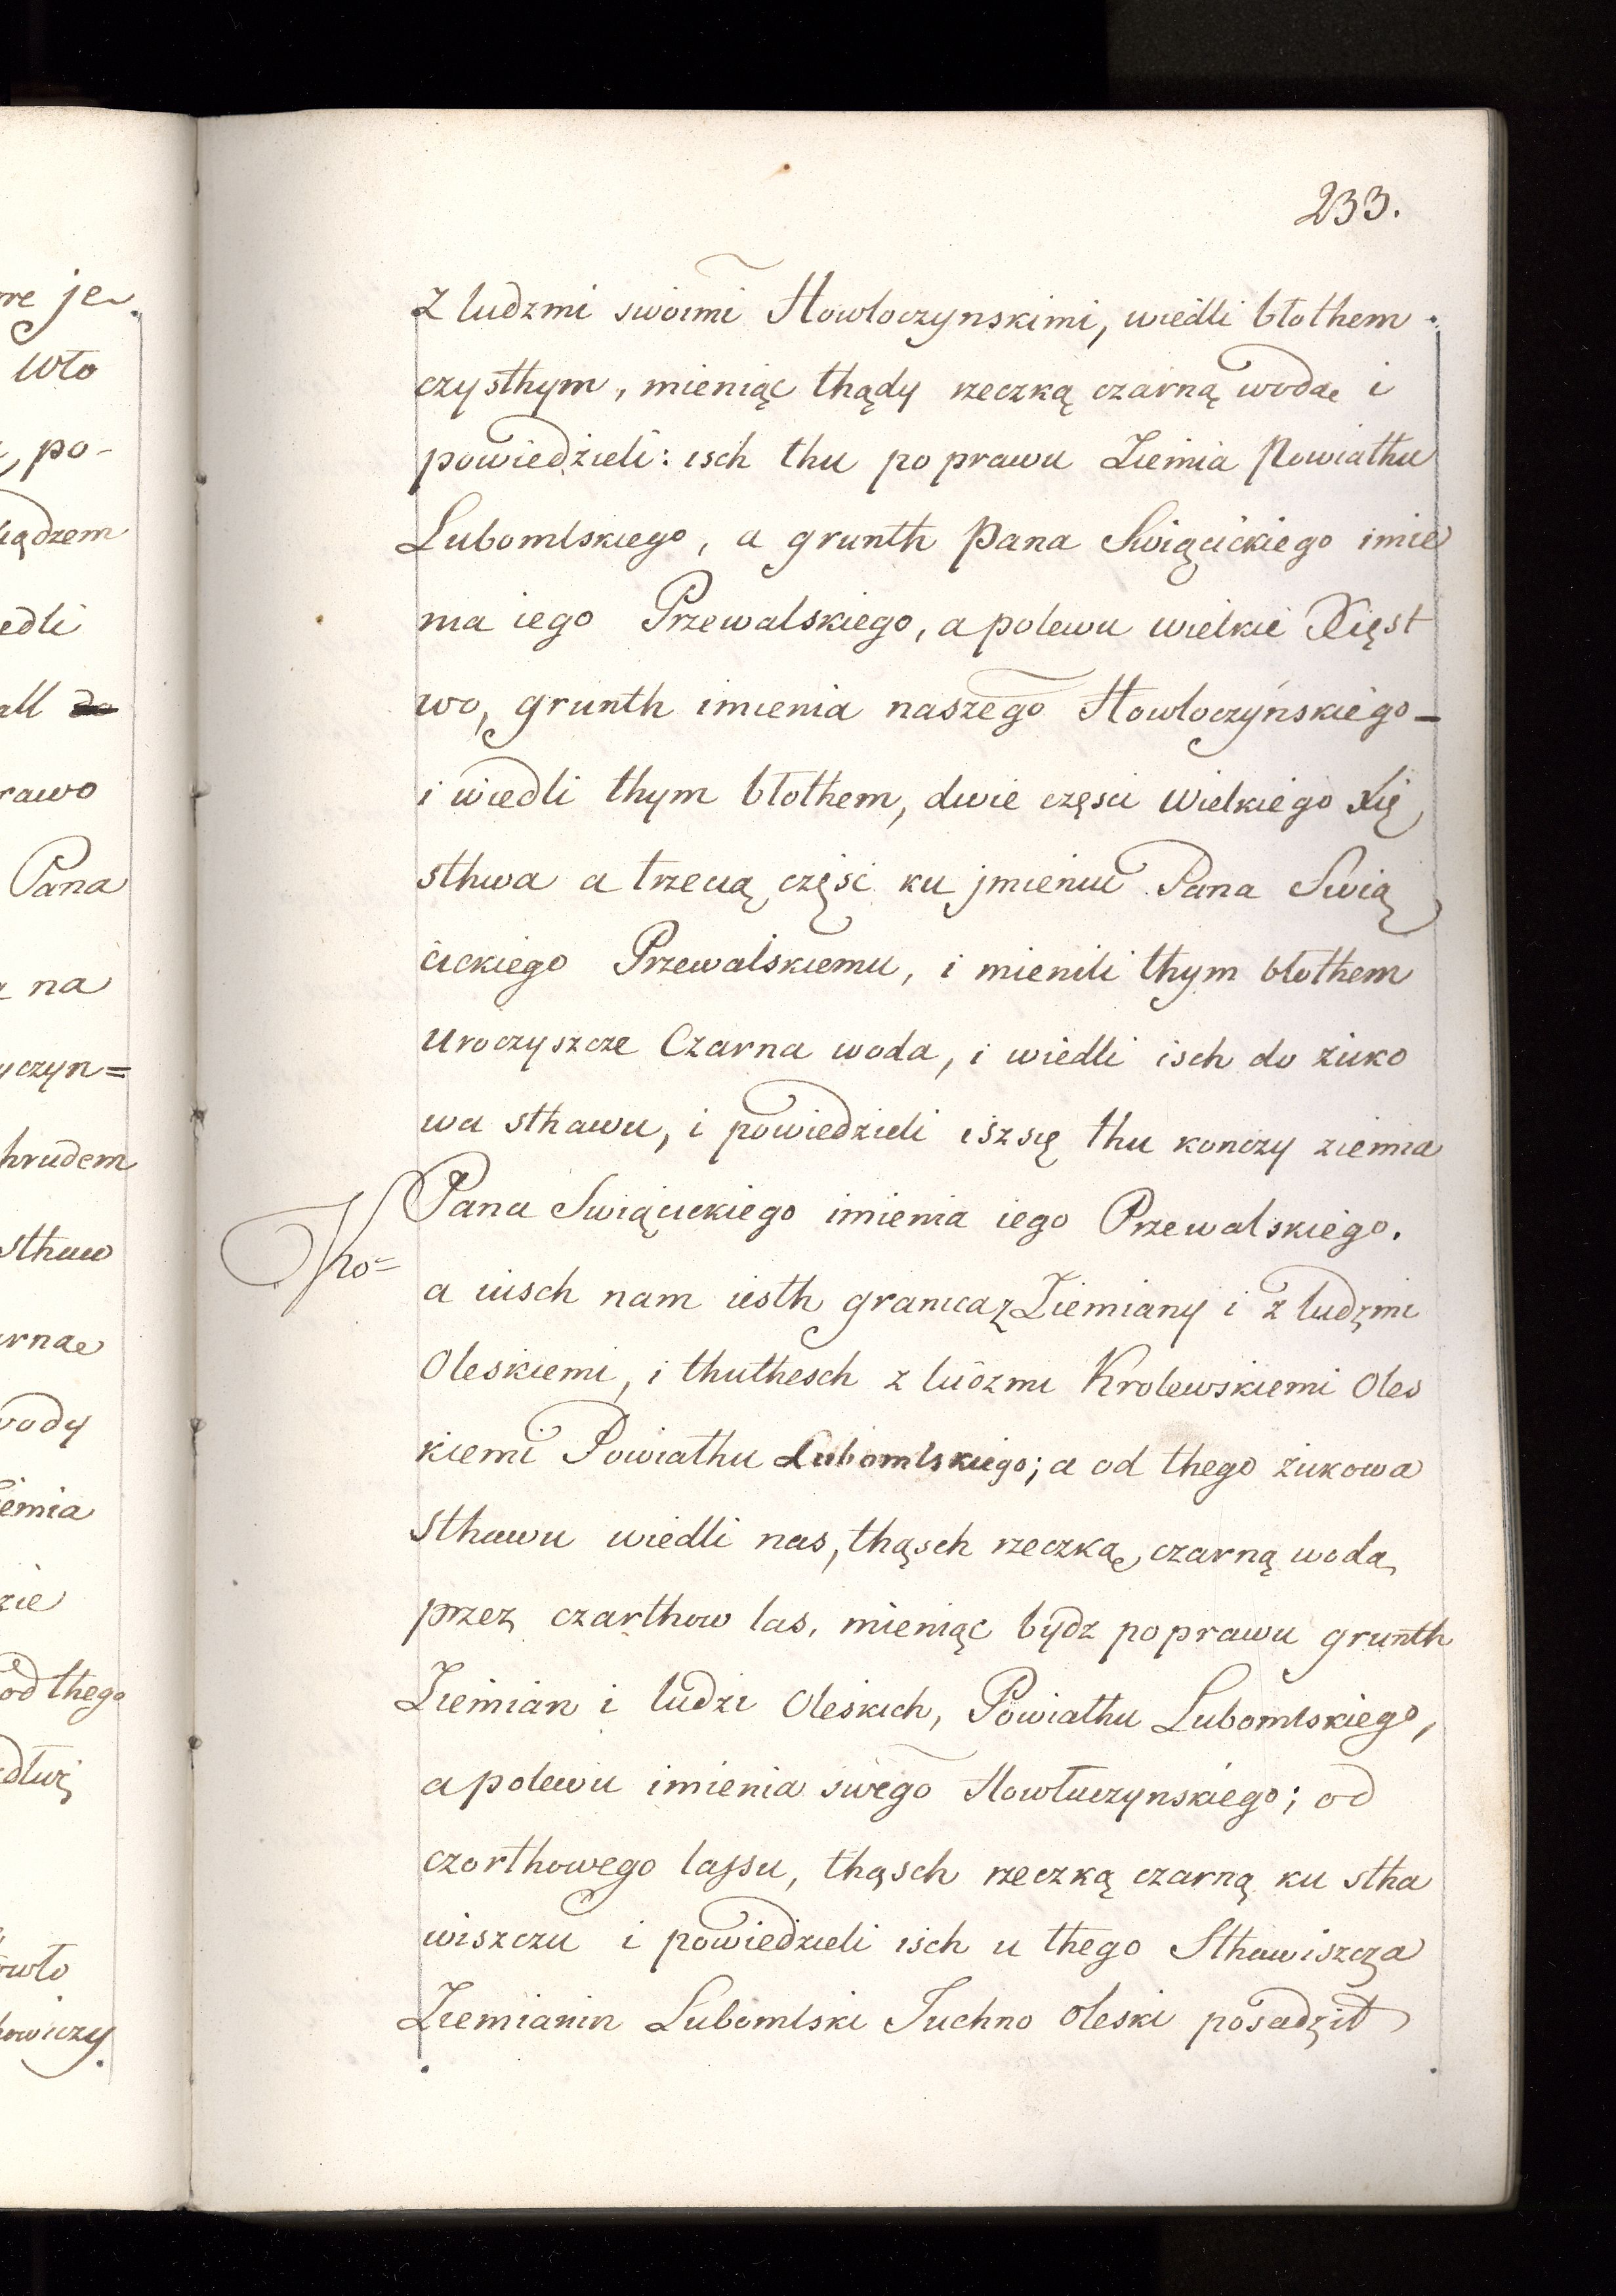 233.
Z ludzmi swoimi Howłoczynskimi, wiedli błothem
czysthym, mieniąc thądy rzeczką czarną wodą i
powiedzieli: isch thu po prawu Ziemia Powiathu
Lubomlskiego, a grunth Pana Swiącickiego imie
nia iego Przewalskiego, a polewu wielkie Xięst
wo, grunth imienia naszego Howłoczyńskiego
i wiedli thym błothem, dwie częsci Wielkiego Xię
sthwa a trzecią część ku jmieniu Pana Swią
cickiego Przewalskiemu, i mienili thym błothem
Uroczyszcze Czarna woda, i wiedli isch do żuko
wa sthawu, i powiedzieli iszsię thu konczy ziemia
Pana Swiącickiego imienia iego Przewalskiego.
Tho=
a iusch nam iesth granica z Ziemiany i z ludzmi
Oleskiemi, i thuthesch z ludzmi Krolewskiemi Oles
kiemi Powiathu Lubomlskiego; a od thego żukowa
sthawu wiedli nas, thąsch rzeczką, czarną wodą
przez czarthow las, mieniąc bydz po prawu grunth
Ziemian i ludzi Oleskich, Powiathu Lubomlskiego,
a polewu imienia swego Howłuczynskiego; od
czorthowego lassu, thąsch rzeczką czarną ku stha
wiszczu i powiedzieli isch u thego Sthawiszcza
Ziemianin Lubomlski Juchno Oleski posadził
me je
wło
po-
iądzem
edli
all
rawo
Pana
na
yczyn=
hrudem
sthaw
arnae
vody
iemia
zie
od thego
dłuż
owło
howiczy